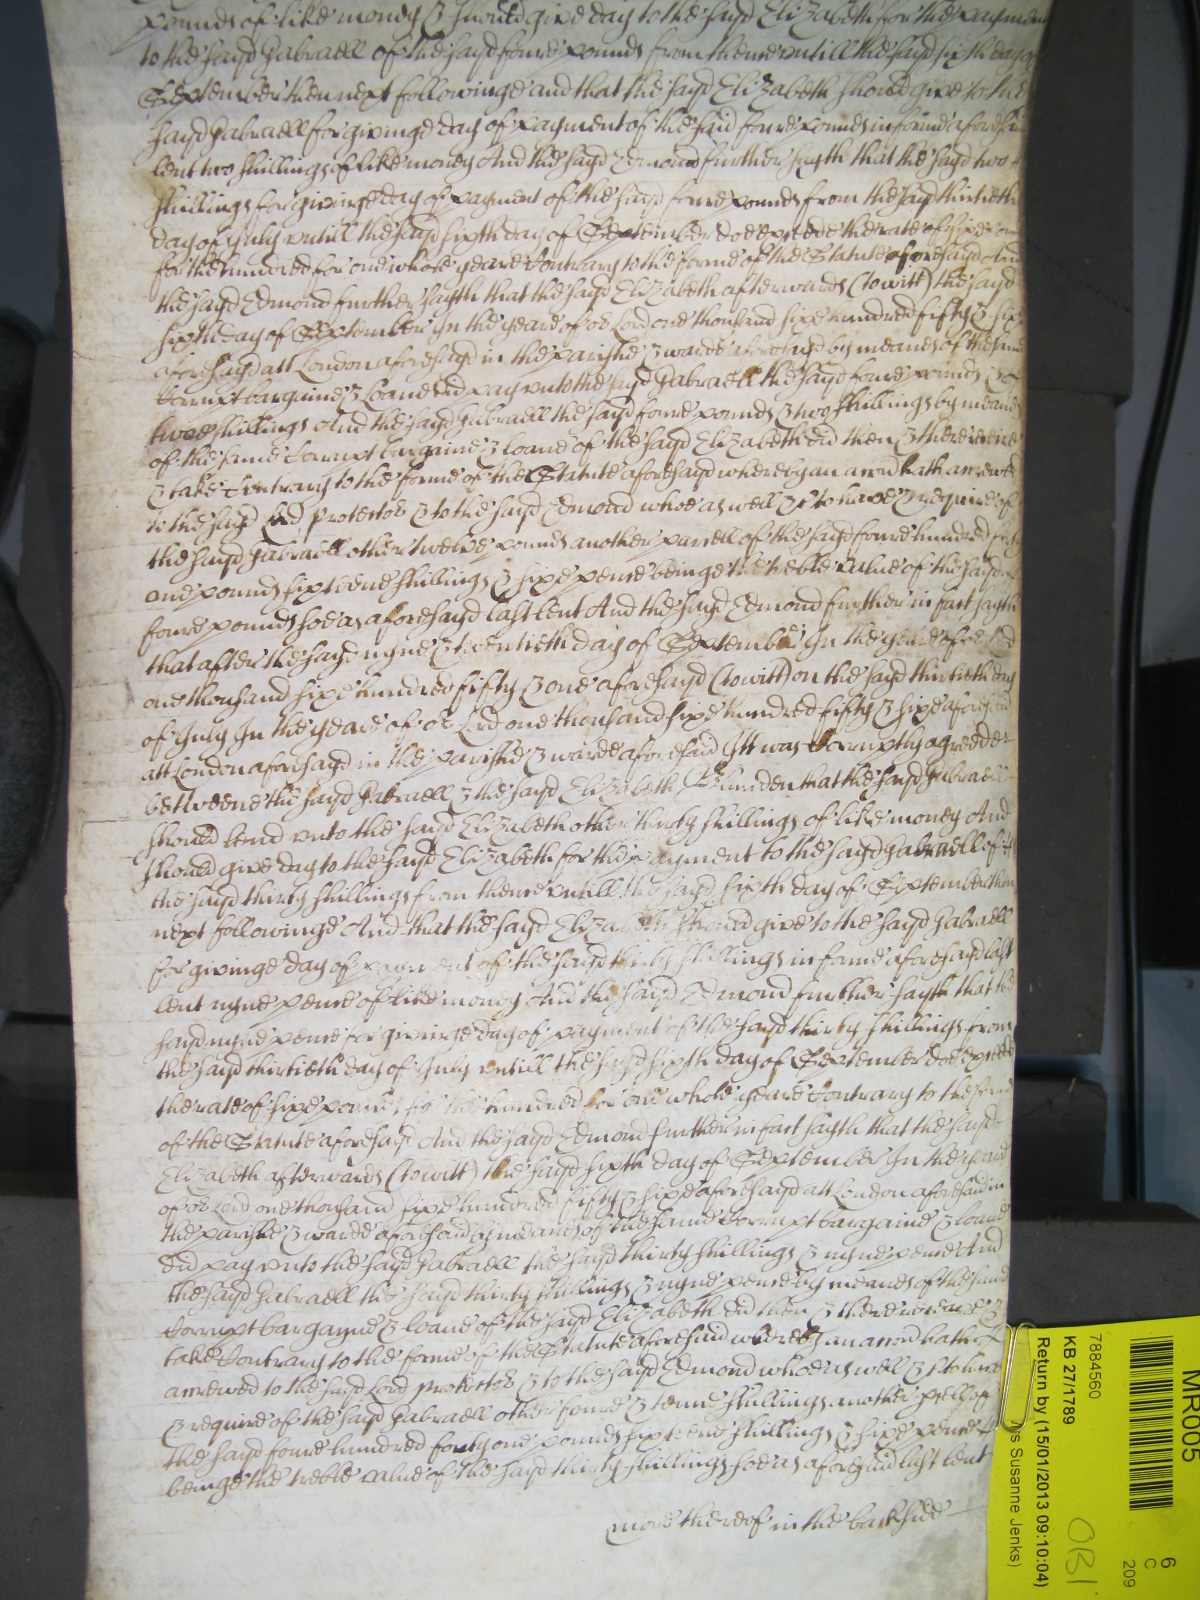 pounds of like money & should give day to the sayd Elizabeth for the payment
to the sayd Gabraell of the sayd foure pounds from thence untill the sayd sixth day of
September then next followinge and that the sayd Elizabeth should give to the
sayd Gabraell for givinge day of payment of the said foure pounds in forme aforesaid
lent two shillings of like money And the sayd Edmond further sayth that the sayd two
shillings for givinge day of payment of the sayd foure pounds from the sayd thirtieth
day of July untill the sayd sixth day of September doe exceede the rate of sixe
for the hundred for one whole yeare Contrary to the forme of the Statute aforesayd And
the sayd Edmond further sayth that the sayd Elizabeth afterwards (towitt) the sayd
sixth day of September In the yeare of or Lord one thousand sixe hundred fifty & sixe
aforesayd att London aforesayd in the parishe & warde aforesayd by meanes of the same
Corrupt bargaine & Loane did pay unto the sayd Gabraell the sayd foure pounds &
twoe shillings And the sayd Gabraell the sayd foure pounds & two shillings by meanes
of the same Corrupt bargaine & loane of the sayd Elizabeth did then & there receive
& take Contrary to the forme of the Statute aforesayd whereby an accon hath accrewed
to the sayd Lord Protector & to the sayd Edmond whoe as well &c to have & require of
the sayd Gabraell other twelve pounds another parcell of the sayd foure hundred forty
one pounds sixteene shillings & sixe pence beinge the treble value of the sayd
foure pounds soe as aforesayd last lent And the sayd Edmond further in fact sayth
that after the sayd nyne & twentieth day of September In the yeare aforesaid
one thousand sixe hundred fifty & one aforesayd (towitt) on the sayd thirtieth day
of July In the yeare of or Lord one thousand sixe hundred fifty & sixe aforesaid
att London aforesayd in the parishe & warde aforesaid Itt was Corruptly agreed
betweene the sayd Gabraell & the sayd Elizabeth that the sayd Gabraell
should lend unto the sayd Elizabeth other thirty shillings of like money And
should give day to the sayd Elizabeth for the payment to the sayd Gabraell of
the sayd thirty shillings from thence untill the sayd sixth day of September then
next followinge And that the sayd Elizabeth should give to the sayd Gabraell
for givinge day of payment of the sayd thirty shillings in forme aforesayd last
lent nyne pence of like money And the sayd Edmond further sayth that the
sayd nyne pence for givinge day of payment of the sayd thirty shillings from
the sayd thirtieth day of July untill the sayd sixth day of September doe exceede
the rate of sixe pounds for the hundred for one whole yeare Contrary to the forme
of the Statute aforesayd And the sayd Edmond further in fact sayth that the sayd
Elizabeth afterwards (towitt) the sayd sixth day of September In the yeare
of or Lord one thousand sixe hundred fifty & sixe aforesayd att London aforesaid in
the parishe & warde aforesaid by meanes of the same Corrupt bargaine & loane
did pay unto the sayd Gabraell the sayd thirty shillings & nyne pence And
the sayd Gabraell the sayd thirty shillings & nyne pence by meanes of the same
Corrupt bargayne & loane of the sayd Elizabeth did then & there receave &
take Contrary to the forme of the Statute aforesaid whereby an accon hath
accrewed to the sayd Lord Protector & to the sayd Edmond whoe as well &c to have
& require of the sayd Gabraell other foure & tenne shillings another pcell of
the sayd foure hundred forty one pounds sixteene shillings & sixe pence
beinge the treble value of the sayd thirty shillings soe as aforesaid last lent
more thereof in the backside
MR005
6
C
209
7884560
KB 27/1789
Return by (15/01/2013 09:10:04)
Susanne Jenks)
OB1